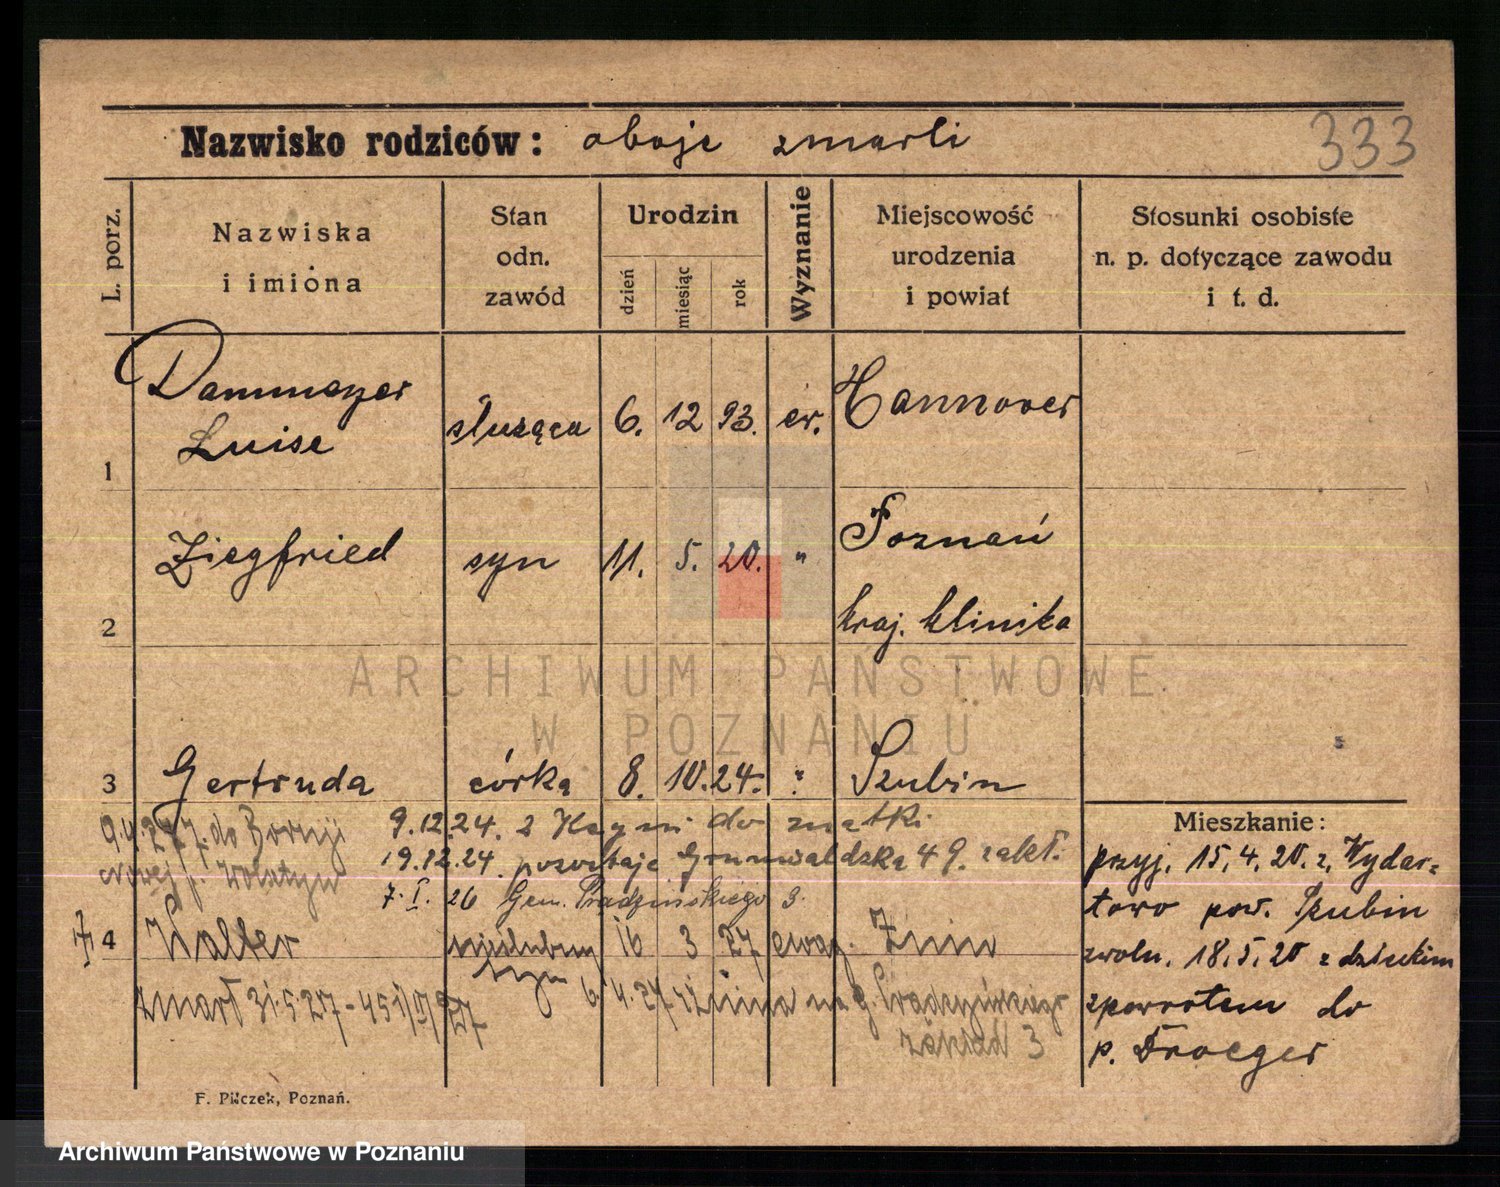 333
Nazwisko rodziców: oboje zmarli
L. porz.
Nazwiska
i imiona
Stan
odn.
zawód
Urodzin
dzień
miesiąc
rok
Wyznanie
Miejscowość
urodzenia
i powiat
Stosunki osobiste
n. p. dotyczące zawodu
i t. d.
1 Dammeyer
Luise
służąca 6. 12 93. ew. Hannover
2 Ziegfried syn 11. 5. 20. " Poznań
kraj. klinika
3 Gertruda córka 8. 10. 24. " Szubin
9.12.24. z Kcyni do matki
19.12.24. pozostaje Grunwaldzka 49. zakł.
7. I. 26 Gen. Prądzyńskiego 3.
9.4.27 do Boruji
nowej p. Wolsztyn
4 Walter nieślubny
syn
16 3 27 ewag. Żnin
6.4.27 z Żnina na G. Prądzyńskiego
zakład 3
zmarł 31.5.27
Mieszkanie:
przyj. 15.4.20. z Wydar=
towo pow. Szubin
zwoln. 18.5.20 z dzieckiem
zpowrotem do
p. Troeger
F. Pilczek, Poznań.
ARCHIWUM PAŃSTWOWE
W POZNANIU
Archiwum Państwowe w Poznaniu